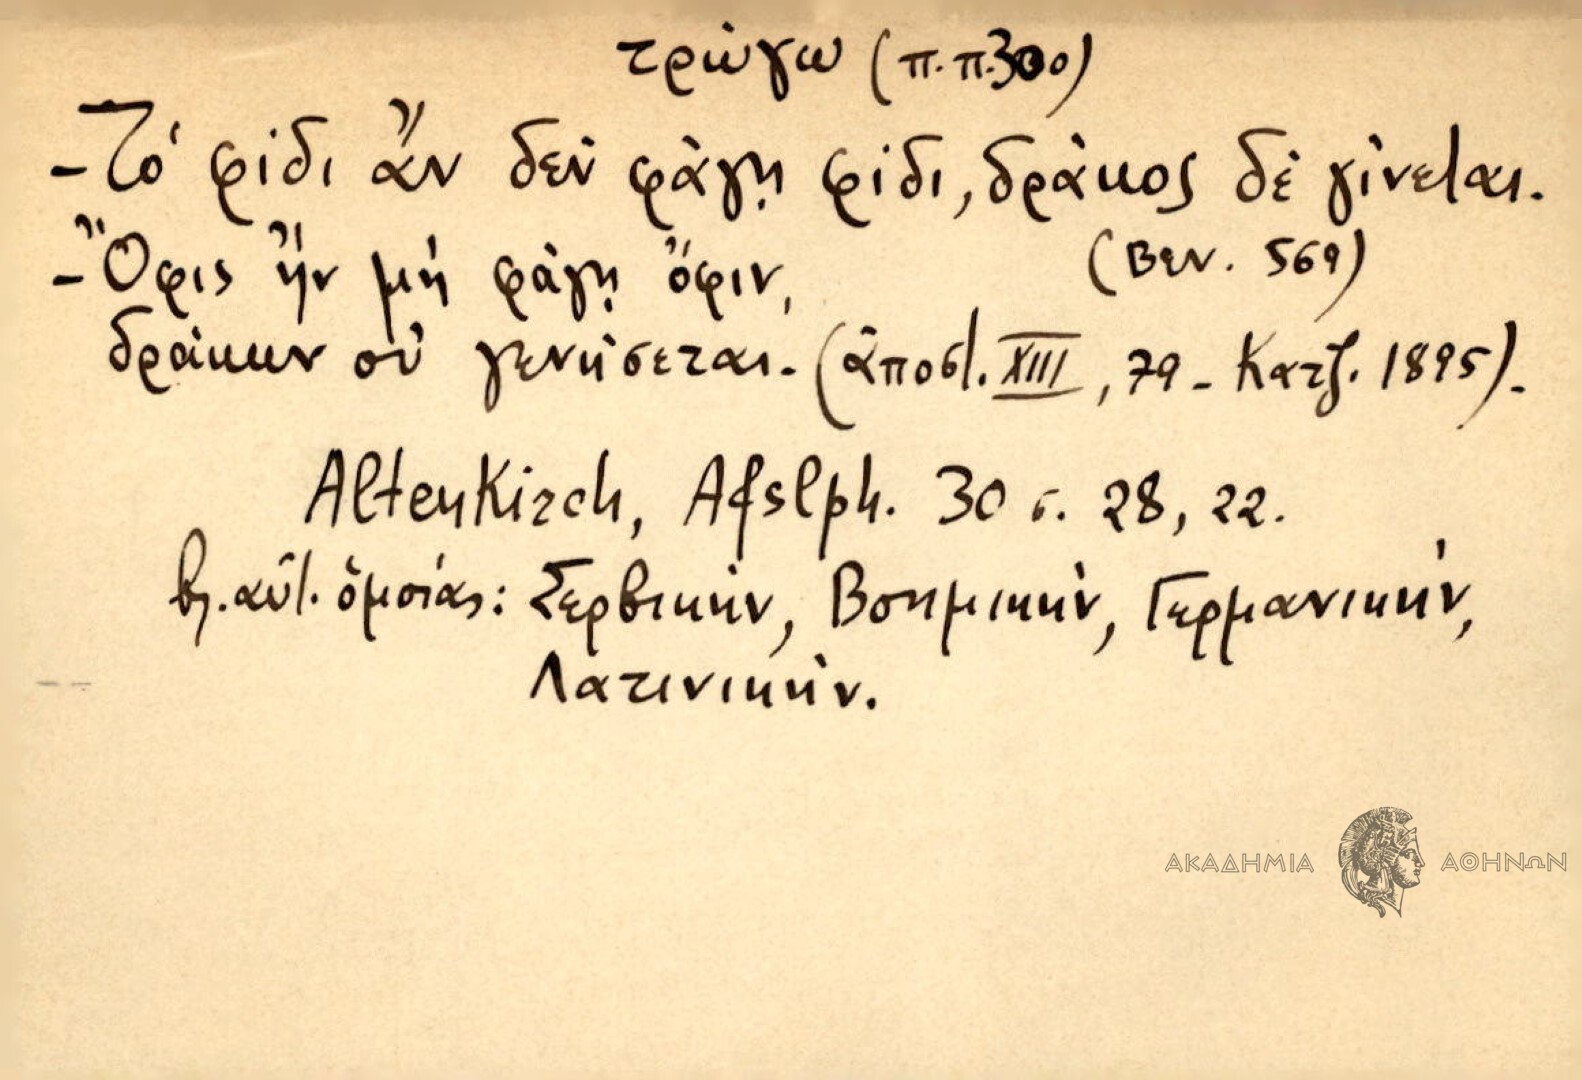 τρώγω (π.π.300)
- Τό φίδι ἄν δέν φάγῃ φίδι, δράκος δέ γίνεται.
- Ὄφις ἤν μή φάγῃ ὄφιν, (Βεν. 569)
δράκων οὐ γενήσεται. (ἀποστ. XIII, 79 - Κατζ. 1895).-
Altenkirch, Afslph. 30 σ. 28, 22.
βλ. αὐτ. ὁμοίας: Σερβικήν, Βοημικήν, Γερμανικήν,
Λατινικήν.
ΑΚΑΔΗΜΙΑ ΑΘΗΝΩΝ